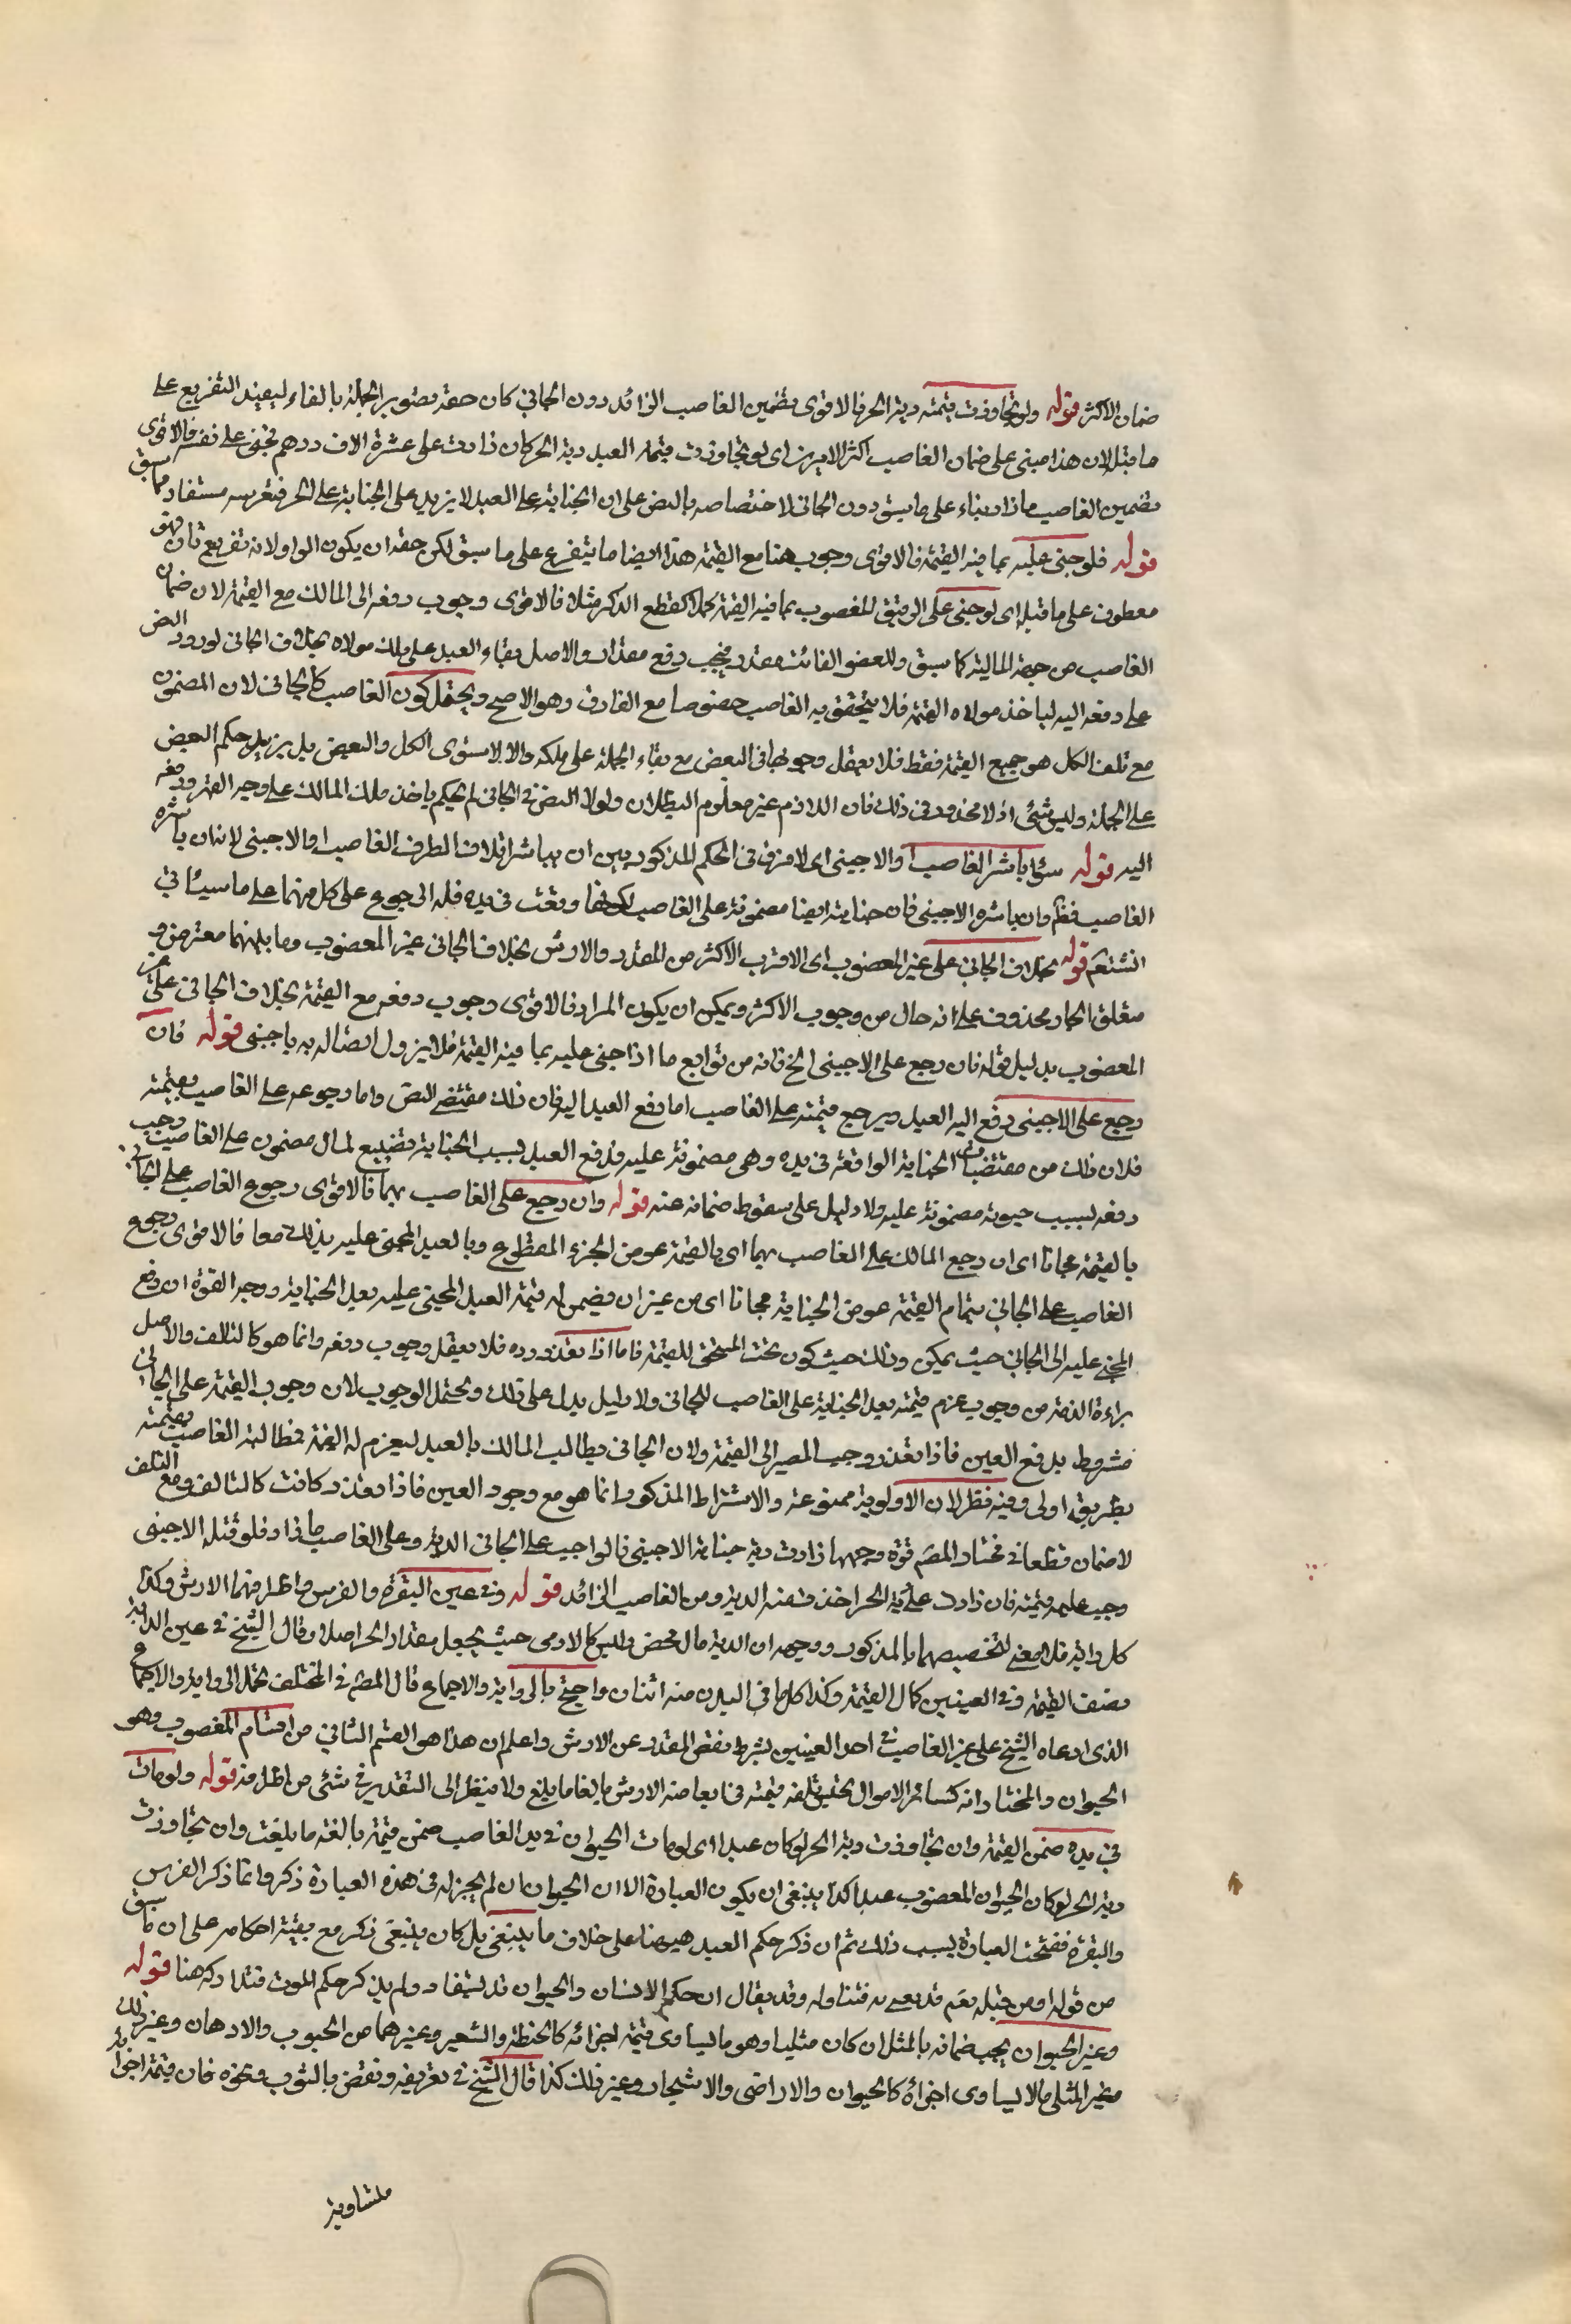 ضمان الاكثر قوله ولو تجاوزت قيمته دية الحر فالاقوى تضمين الغاصب الزائد دون الجاني كان حقه تصوير الجملة بالفاء ليفيد التفريع على
ما قبل لان هذا مبنى على ضمان الغاصب اكثر الامرين اى لو تجاوزت قيمة العبد دية الحر كان زادت على عشرة الاف درهم فجنى على نفسه فالاقوى
تضمين الغاصب ما زاد بناء على ما سبق دون الجانى لاختصاصه بالنص على ان الجناية على العبد لا يزيد على الجناية على الحر فتغريمه مستفاد مما سبق
قوله فلو جنى عليه بما فيه القيمة فالاقوى وجوب هنا مع القيمة هذا ايضا ما يتفرع على ما سبق لكن حقه ان يكون الواو لانه تفريع ثان فهو
معطوف على ما قبله اى لو جنى على الرقيق المغصوب بما فيه القيمة كملا كقطع الذكر مثلا فالاقوى وجوب دفعه الى المالك مع القيمة لان ضمان
الغاصب من جهة المالية كما سبق وللعضو الفائت مقدر فيجب دفع مقداره والاصل بقاء العبد على ملك مولاه بخلاف الجانى لورود النص
على دفعه اليه لياخذ مولاه القيمة فلا يتحقق به الغاصب خصوصا مع الفارق وهو الاصح ويحتمل كون الغاصب كالجانى لان المضمون
مع تلف الكل هو جميع القيمة فقط فلا يعقل وجوبها فى البعض مع بقاء الجملة على ملكه والا لاستوى الكل والبعض بل يزيد حكم البعض
على الجملة وليس بشئ اذ لا محذور فى ذلك فان اللازم غير معلوم البطلان ولولا النص فى الجانى لم نحكم باخذ ملك المالك على وجه القهر ودفعه
اليه قوله سواء باشر الغاصب او الاجنبى اى لا فرق فى الحكم المذكور بين ان يباشر اتلاف الطرف الغاصب او الاجنبى لانه ان باشره
الغاصب فظ وان باشره الاجنبى فان جنايته ايضا مضمونة على الغاصب لكونها وقعت فى يده فله الرجوع على كل منهما على ما سياتى
انشتعم قوله بخلاف الجانى على غير المغصوب اى الاقرب الاكثر من المقدر والارش بخلاف الجانى غير المغصوب وما بينهما معترض و
متعلق الجار محذوف على انه حال من وجوب الاكثر ويمكن ان يكون المراد فالاقوى وجوب دفعه مع القيمة بخلاف الجانى على غير
المغصوب بدليل قوله فان رجع على الاجنبى الخ فانه من توابع ما اذا جنى عليه بما فيه القيمة فلا يزول اتصاله به باجنبى قوله فان
رجع على الاجنبى دفع اليه العبد ويرجع بقيمته على الغاصب اما دفع العبد اليه فان ذلك مقتضى النص واما رجوعه على الغاصب بقيمته
فلان ذلك من مقتضيات الجناية الواقعة فى يده وهى مضمونة عليه ودفع العبد بسبب الجناية تضييع لمال مضمون على الغاصب وجب
دفعه لسبب حيوته مضمونة عليه ولا دليل على سقوط ضمانه عنه قوله وان رجع على الغاصب بهما فالاقوى رجوع الغاصب على الجانى
بالقيمة مجانا اى ان رجع المالك على الغاصب بهما اى بالقيمة عوض الجزء المقطوع وبالعبد المجنى عليه بذلك معا فالاقوى رجوع
الغاصب على الجانى بتمام القيمة عوض الجناية مجانا اى من غير ان يضمن له قيمة العبد المجنى عليه بعد الجناية ووجه القوة ان دفع
المجنى عليه الى الجانى حيث يمكن وذلك حيث كون تحت المستحق للقيمة فاما اذا تعذر رده فلا يعقل وجوب دفعه وانما هو كالتالف والاصل
براءة الذمة من وجوب غرم قيمته بعد الجناية على الغاصب للجانى ولا دليل يدل على ذلك ويحتمل الوجوب لان وجوب القيمة على الجانى
مشروط بدفع العين فاذا تعذر وجب المصير الى القيمة ولان الجانى يطالب المالك بالعبد ليغرم له القيمة فمطالبته الغاصب بقيمته
بطريق اولى وفيه نظر لان الاولوية ممنوعة والاشتراط المذكور انما هو مع وجود العين فاذا تعذر كانت كالتالف ومع التلف
لا ضمان قطعا فى مختار المصم قوة وجهها زادت دية جناية الاجنبى فالواجب على الجانى الدية وعلى الغاصب ما زاد فلو قتله الاجنبى
وجب عليه قيمته فان زادت على دية الحر اخذ منه الدية ومن الغاصب الزائد قوله وفى عين البقرة والفرس واطرافهما الارش وكذا
كل دابة فلا معنى لتخصيصهما بالمذكور ووجهه ان الدية مال محض وليس كالادمى حيث يجعل مقدار الحر اصلا وقال الشيخ فى عين الدابة
نصف القيمة وفى العينين كمال القيمة وكذا كل ما فى البدن منه اثنان واحتج بالرواية والاجماع قال المصم فى المختلف تحمل الرواية والاجماع
الذى ادعاه الشيخ على غير الغاصب فى احد العينين بشرط نقص المقدر عن الارش واعلم ان هذا هو القسم الثانى من اقسام المغصوب وهو
الحيوان والمختار انه كسائر الاموال يضمن بتلفه قيمته وبابعاضه الارش بالغا ما بلغ ولا ينظر الى التقدير فى شئ من اطرافه قوله ولو مات
فى يده ضمن القيمة وان تجاوزت دية الحر لو كان عبدا اى لو مات الحيوان فى يد الغاصب ضمن قيمته بالغة ما بلغت وان تجاوزت
دية الحر لو كان الحيوان المغصوب عبدا كذا ينبغى ان يكون العبارة الا ان الحيوان لم يجز له فى هذه العبارة ذكر وانما ذكر الفرس
والبقرة ففتحت العبارة بسبب ذلك ثم ان ذكر حكم العبد هيهنا على خلاف ما ينبغى بل كان ينبغى ذكره مع بقية احكامه على ان ما سبق
من قوله او من قبله يعم قد يعبر به فتناوله وقد يقال ان حكم الانسان والحيوان قد يستفاد ولم يذكر حكم الموت فتداركه هنا قوله
وغير الحيوان يجب ضمانه بالمثل ان كان مثليا وهو ما يساوى قيمة اجزائه كالحنطة والشعير وغيرهما من الحبوب والادهان وغير ذلك
فغير المثلى ما لا يساوى اجزائه كالحيوان والاراضى والاشجار وغير ذلك كذا قال الشيخ فى تعريفه ونقض بالثوب ونحوه فان قيمة اجزائه
متساوية